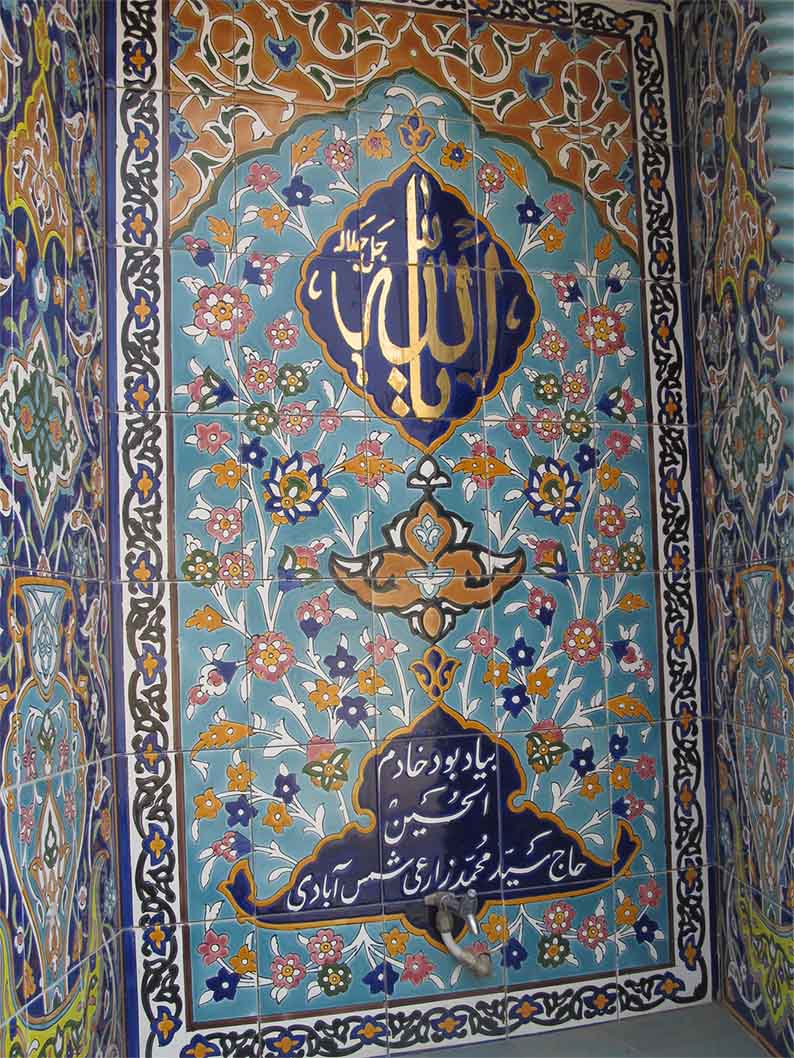 یا الله
جل جلاله
بیاد بود خادم
الحسین
حاج سید محمد زارعی شمس آبادی